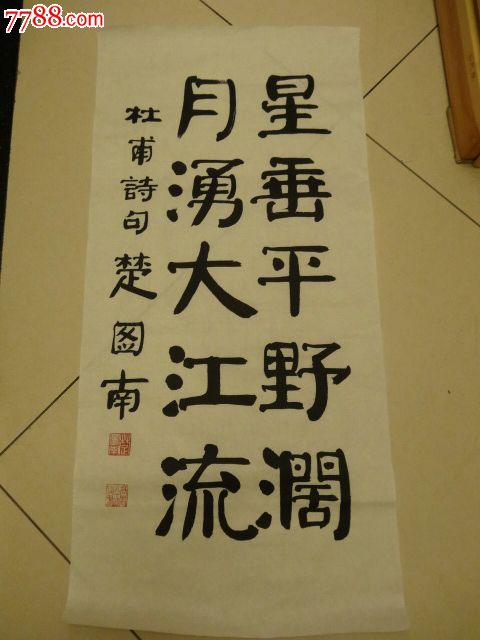 7788.com
星垂平野濶
月湧大江流
杜甫詩句 楚图南